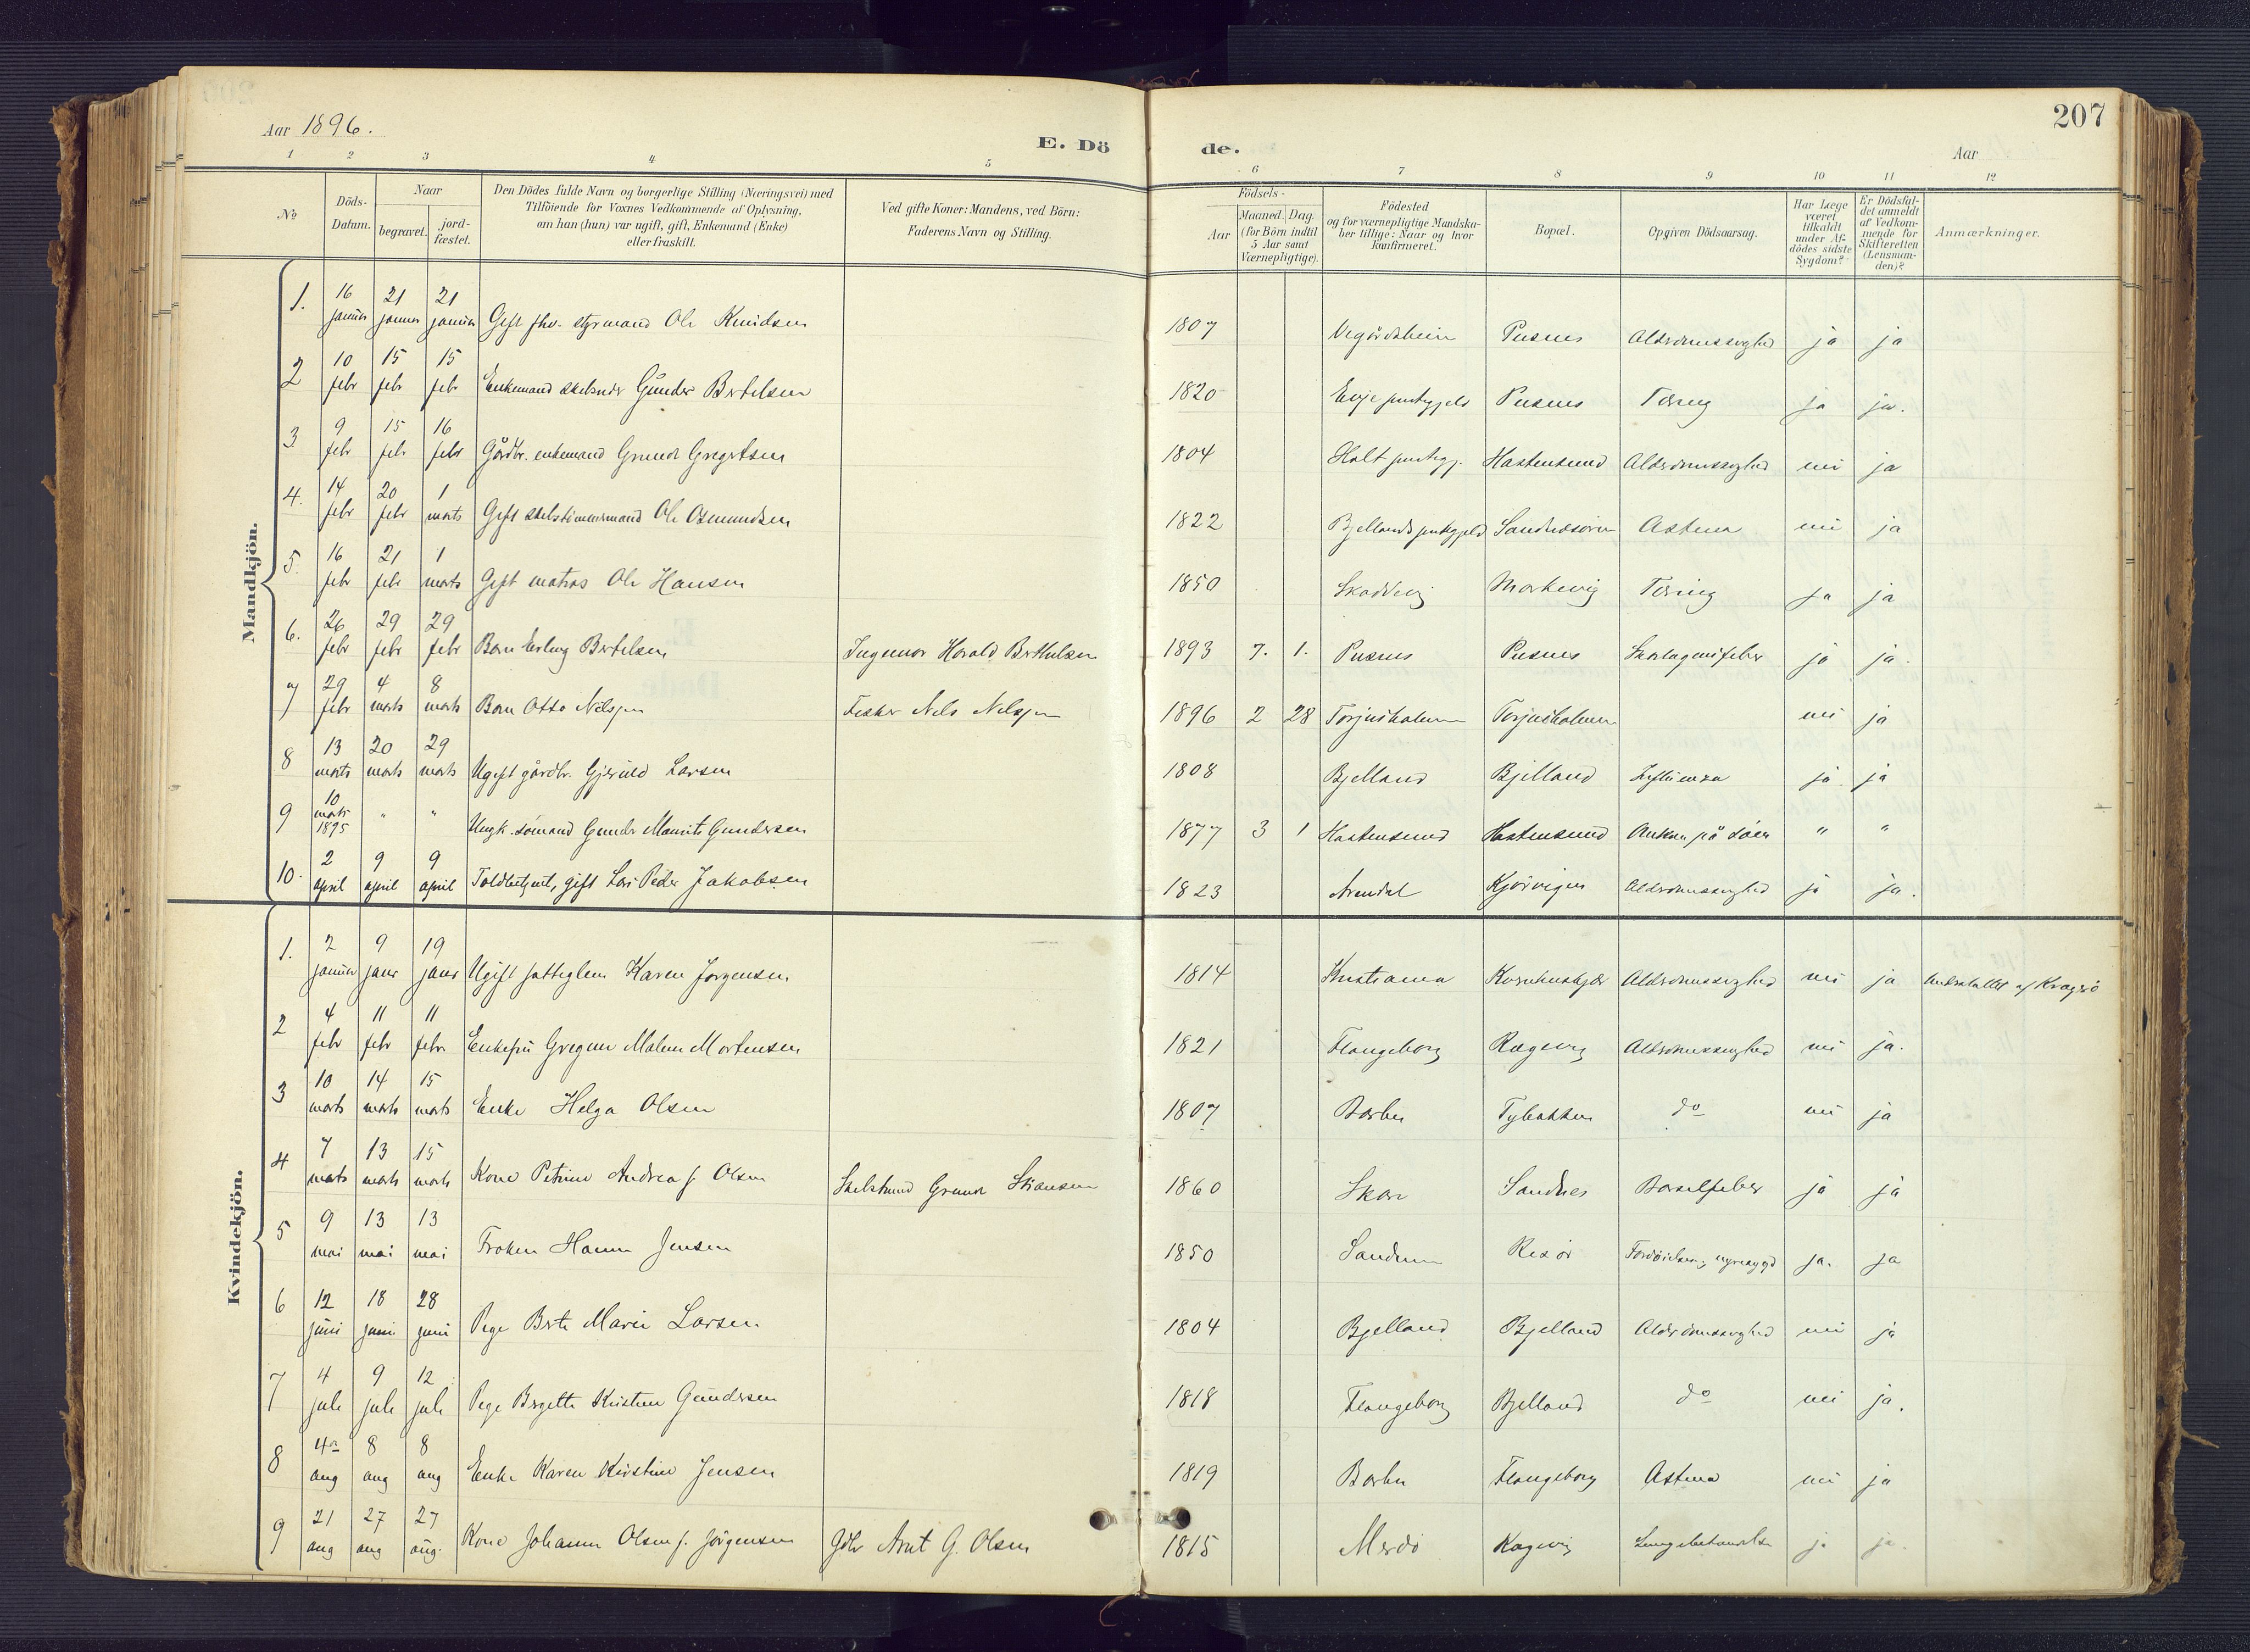 Aar 1896.
E. Dö de.
Aar
207
1 2 3 4 5 6 7 8 9 10 11 12
№
Döds-Datum.
Naar
begravet.
jord-fæstet.
Den Dödes fulde Navn og borgerlige Stilling (Næringsvei) med
Tilföiende for Voxnes Vedkommende af Oplysning,
om han (hun) var ugift, gift, Enkemand (Enke)
eller fraskilt.
Ved gifte Koner: Mandens, ved Börn:
Faderens Navn og Stilling.
Födsels-
Aar
Maaned. Dag.
(for Börn indtil
5 Aar samt
Værnepligtige).
Födested
og for værnepligtige Mandska-
ber tillige: Naar og hvor
konfirmeret.
Bopæl.
Opgiven Dödsaarsag.
Har Læge
været
tilkaldt
under Af-
dödes sidste
Sygdom?
Er Dödsfal-
det anmeldt
af Vedkom-
mende for
Skifteretten
(Lensman-
den)?
Anmærkninger.
Mandkjön.
1. 16 januar 21 januar 21 januar Gift fhv. styrmand Ole Knudsen 1807 Vegårdsheien Pusnes Alderdomssvaghed ja ja
2 10 febr 15 febr 15 febr Enkemand Gunder Bertelsen 1820 Evje Pusnes Tæring ja ja.
3 9 febr 15 febr 16 febr Gårdbr. enkemand Gregertsen 1804 Holt Hastensund Alderdomssvaghed nei ja
4. 14 febr 20 febr 1 marts Gift skibstømmermand Ole Osmundsen 1822 Bjellands Astma nei ja
5. 16 febr 21 febr 1 marts Gift matros Ole Hansen 1850 Skaddevig Narkevig Tæring ja ja
6. 26 febr 29 febr 29 febr Barn Erling Bertelsen Harald Berthelsen 1893 7. 1. Pusnes Pusnes Skarlagensfeber ja ja.
7 29 febr 4 marts 8 marts Barn Otto Nilsen Fisker Nils Nilsen 1896 2 28 Torjusholmen Torjusholmen nei ja
8 13 marts 20 marts 29 marts Ugift gårdbr. Gjeruld Larsen 1808 Bjelland Bjelland Influenza ja. ja
9 10 marts 1895 " " Ungk. sømand Gunder Maurits Gundersen 1877 3 1 Hastensund Hastensund på søen " "
10. 2 april 9 april 9 april Toldbetjent, gift Lars Peder Jakobsen 1823 Arendal Kjørvigen Alderdomssvaghed ja ja.
Kvindekjön.
1. 2 januar 9 janr 19 janr Ugift fattiglem Karen Jørgensen 1814 Kristiania Alderdomssvaghed nei ja af Kragerø
2 4 febr 11 febr 11 febr. Enkefru Gregine Malene Mortensen 1821 Flangeborg Rægevig Alderdomssvaghed nei ja.
3 10 marts 14 marts 15 marts Enke Helga Olsen 1807 Barbu Tybakken do nei ja
4 7 marts 13 marts 15 marts Kone Petrine Andrea f. Olsen 1860 Skare Sandnes Barselfeber ja ja
5 9 mai 13 mai 13 mai Frøken Hanna Jensen 1850 Sandum Risør nyresygd ja. ja
6 12 juni 18 juni 28 juni Pige Berte Marie Larsen 1804 Bjelland Bjelland Alderdomssvaghed nei ja
7 4 juli 9 juli 12 juli Pige Birgitte Kristine Gundersen 1818 Flangeborg Bjelland do nei ja.
8 4de aug 8 aug 8 aug Enke Karen Kirstine Jensen 1819 Barbu Flangeborg Astma nei ja
9 21 aug 27 aug 27 aug. Kone Johanne Olsen f. Jörgensen Gdbr Arnt G. Olsen 1815 Merdø Rægevig Lungebetændelse ja ja.